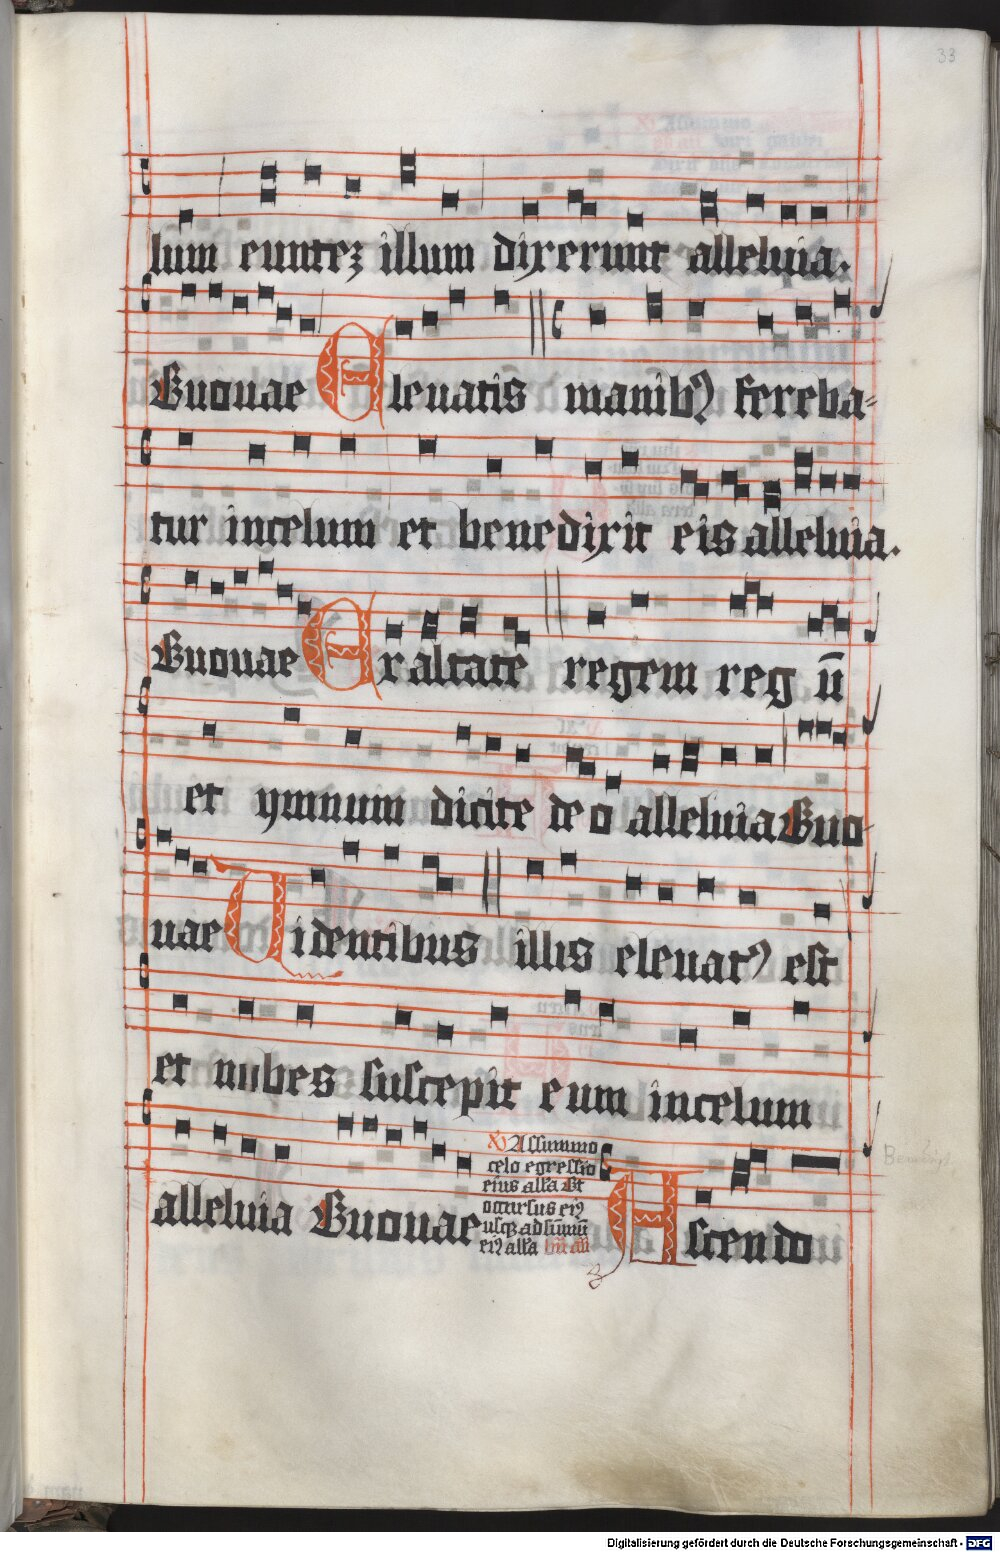 33
lum euntez illum dixerunt alleluia.
Euouae Eleuatis manibꝰ fereba-
tur incelum et benedixit eis alleluia.
Euouae Exaltate regem regū
et ymnum dicite deo alleluia Euo
uae Uidentibus illis eleuatꝰ est
et nubes suscepit eum incelum
alleluia Euouae Ascendo
Assummo
celo egressio
eius alla Et
occursus eiꝰ
usqꝫ ad sūmū
eiꝰ alla
Digitalisierung gefördert durch die Deutsche Forschungsgemeinschaft - DFG